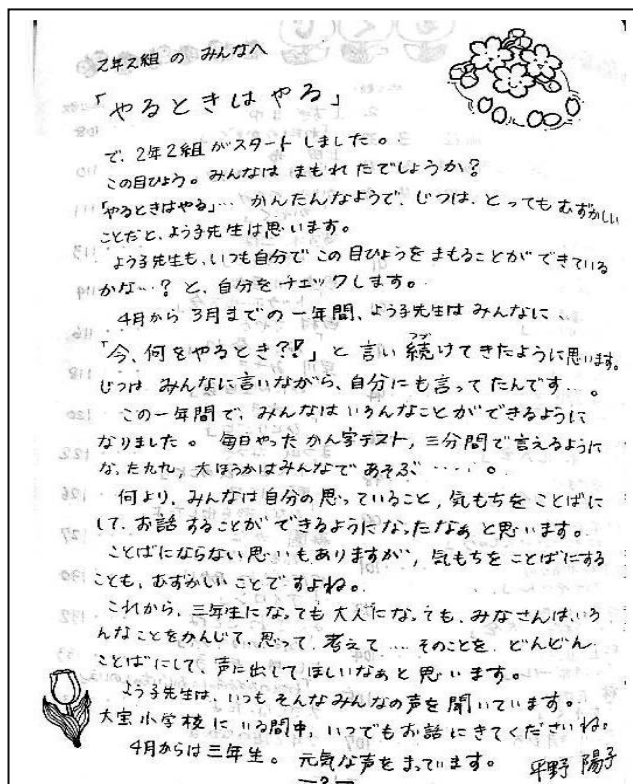 2年2組のみんなへ
「やるときはやる」
で、2年2組がスタートしました。
この目ひょう。みんなはまもれたでしょうか？
「やるときはやる」… かんたんなようで、じつは、とってもむずかしい
ことだと、よう子先生は思います。
よう子先生も、いつも自分でこの目ひょうをまもることができている
かな…？と、自分をチェックします。
4月から3月までの一年間、よう子先生はみんなに
「今、何をやるとき？！」と言い続けてきたように思います。
つづ
じつは みんなに言いながら、自分にも言ってたんです…。
この一年間で、みんなはいろんなことができるように
なりました。毎日やったかん字テスト，三分間で言えるように
なった九九，大ほうかはみんなであそぶ……。
何より、みんなは自分の思っていること，気もちをことばに
して、お話することができるようになったなぁと思います。
ことばにならない思いもありますが，気もちをことばにする
ことも、むずかしいことですよね。
これから、三年生になっても大人になっても、みなさんは、いろ
んなことをかんじて、思って、考えて…そのことを、どんどん
ことばにして、声に出してほしいなぁと思います。
よう子先生は、いつもそんなみんなの声を聞いています。
大宝小学校にいる間中、いつでもお話にきてくださいね。
4月からは三年生。元気な声をまっています。
平野 陽子
—2—